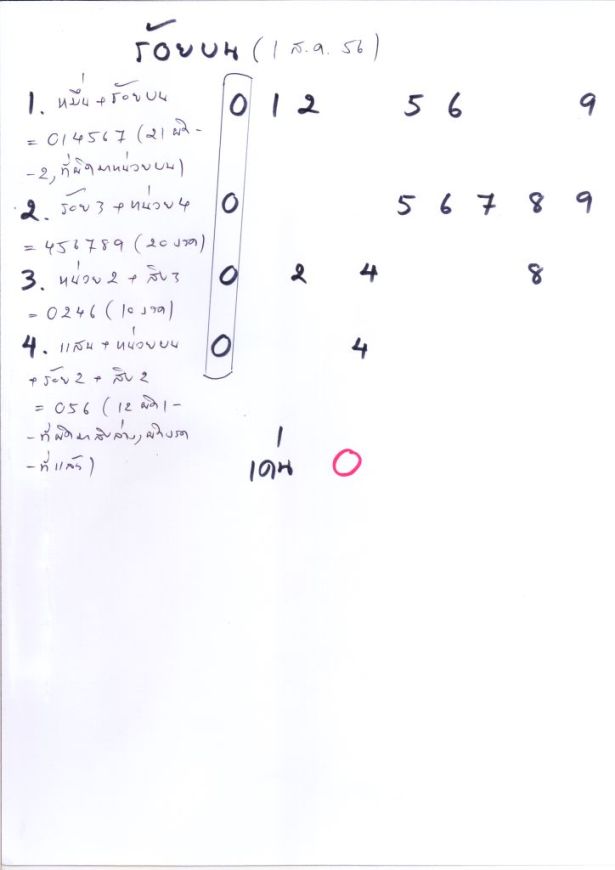 ร้อยบน (1 ส.ค. 56)
1. หมื่น + ร้อยบน 0 1 2 5 6 9
= 014567 (21 ผิด -
-2, ที่ผิดมาหน่วยบน)
2. ร้อย 3 + หน่วย 4 0 5 6 7 8 9
= 456789 (20 งวด)
3. หน่วย 2 + สิบ 3 0 2 4 8
= 0246 (10 งวด)
4. แสน + หน่วยบน 0 4
+ ร้อย 2 + สิบ 2
= 056 (12 ผิด 1 -
- ที่ผิดมาสิบล่าง, ผิดงวด
- ที่แล้ว)
เด่น 0